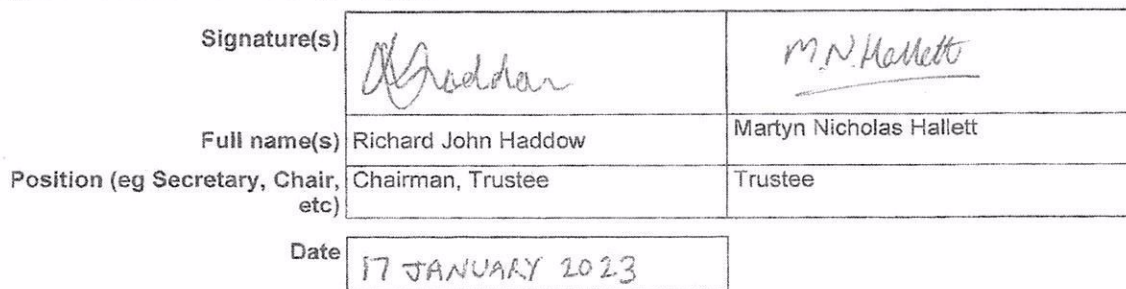 Signature(s)
M.N. Hallett
Full name(s) Richard John Haddow Martyn Nicholas Hallett
Position (eg Secretary, Chair, Chairman, Trustee Trustee
etc)
Date 17 JANUARY 2023